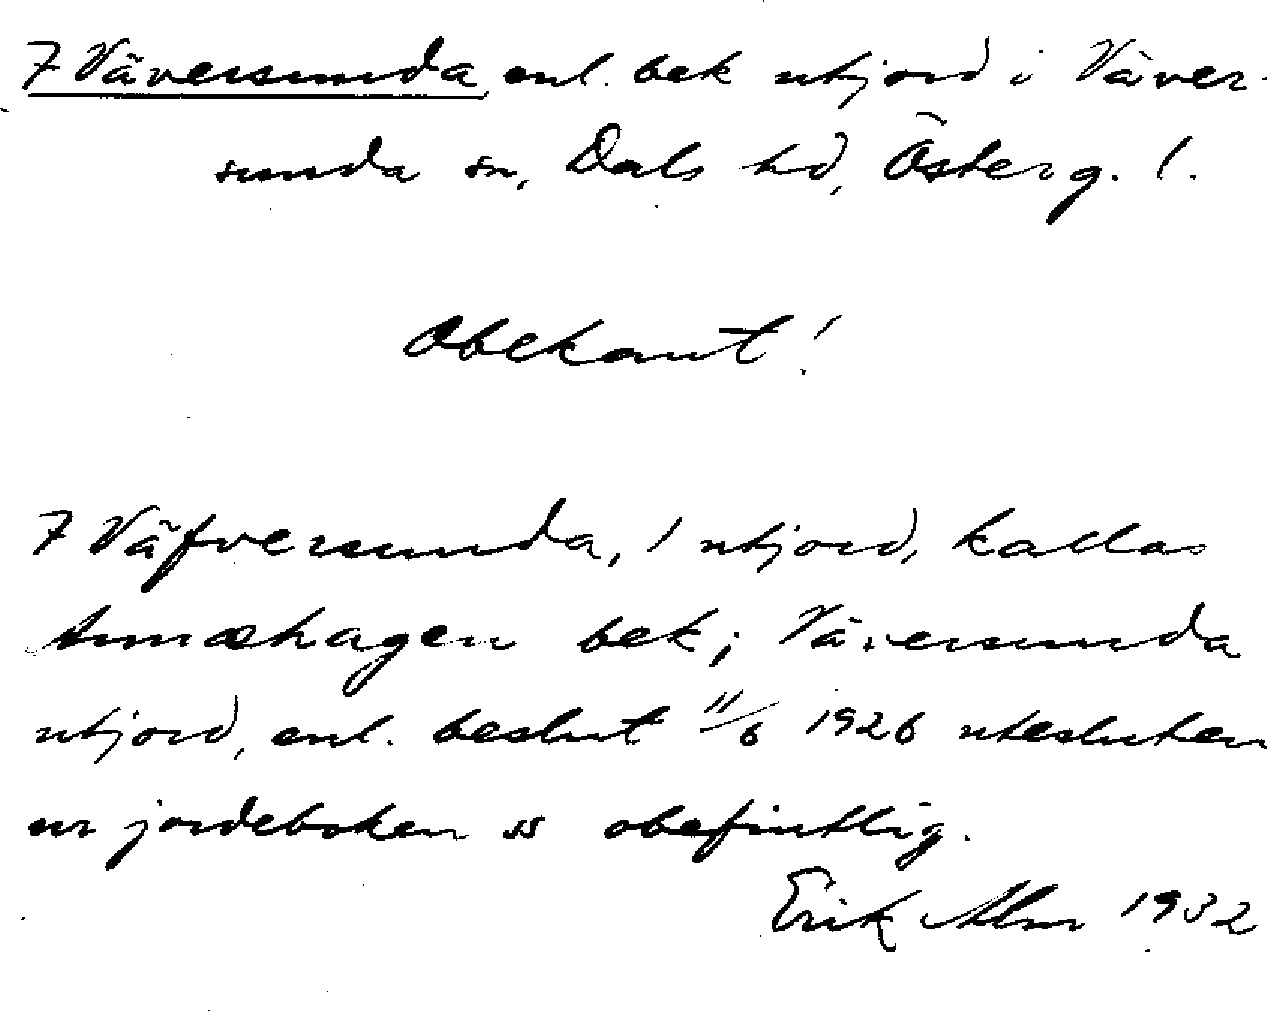 7 Väversunda enl. bek utjord i Väver-
sunda sn, Dals hd, Österg. l.
Obekant!
7 Väfversunda, 1 utjord, kallas
Annæhagen bek; Väversunda
utjord, enl. beslut 11/6 1926 utesluten
ur jordeboken ss obefintlig.
Erik Alm 1932